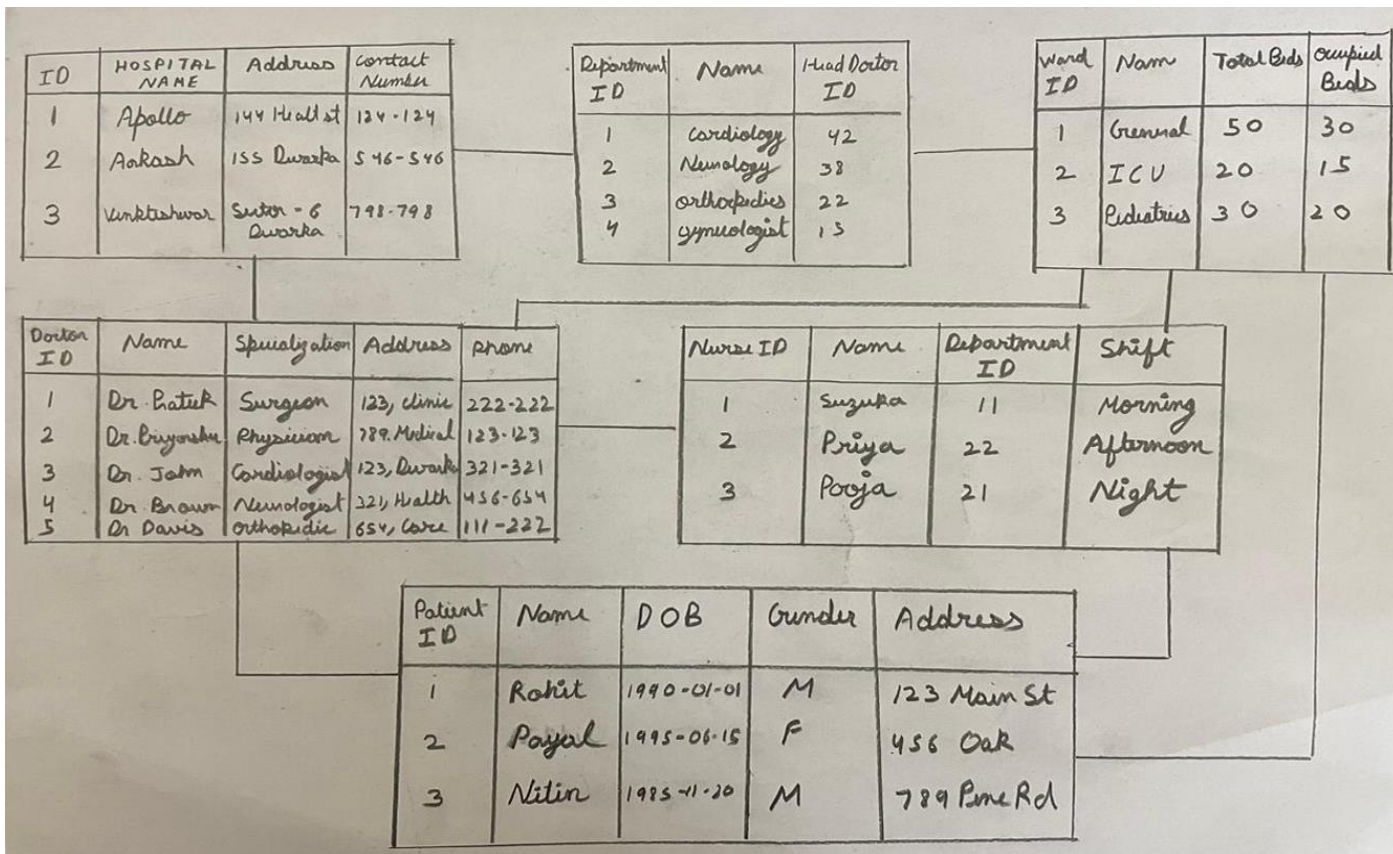 ID HOSPITAL NAME Address Contact Number
1 Apollo 144 Healt st 124-124
2 Aakash ISS Dwarka 546-546
3 Venktishwar Sector - 6 Dwarka 798-798
Department ID Name Head Doctor ID
1 Cardiology 42
2 Neurology 38
3 orthopedics 22
4 gynecologist 15
Ward ID Name Total Beds Occupied Beds
1 General 50 30
2 ICU 20 15
3 Pediatrics 30 20
Doctor ID Name Specialization Address Phone
1 Dr. Pratiek Surgeon 123, clinic 222-222
2 Dr. Priyanshu Physician 789. Medical 123-123
3 Dr. John Cardiologist 123, Dwarka 321-321
4 Dr. Brown Neurologist 321, Health 456-654
5 Dr Davis orthopedic 654, Care 111-222
Nurse ID Name Department ID Shift
1 Suzuka 11 Morning
2 Priya 22 Afternoon
3 Pooja 21 Night
Patient ID Name DOB Gender Address
1 Rohit 1990-01-01 M 123 Main St
2 Payal 1995-06-15 F 456 Oak
3 Nitin 1985-11-20 M 789 Pine Rd